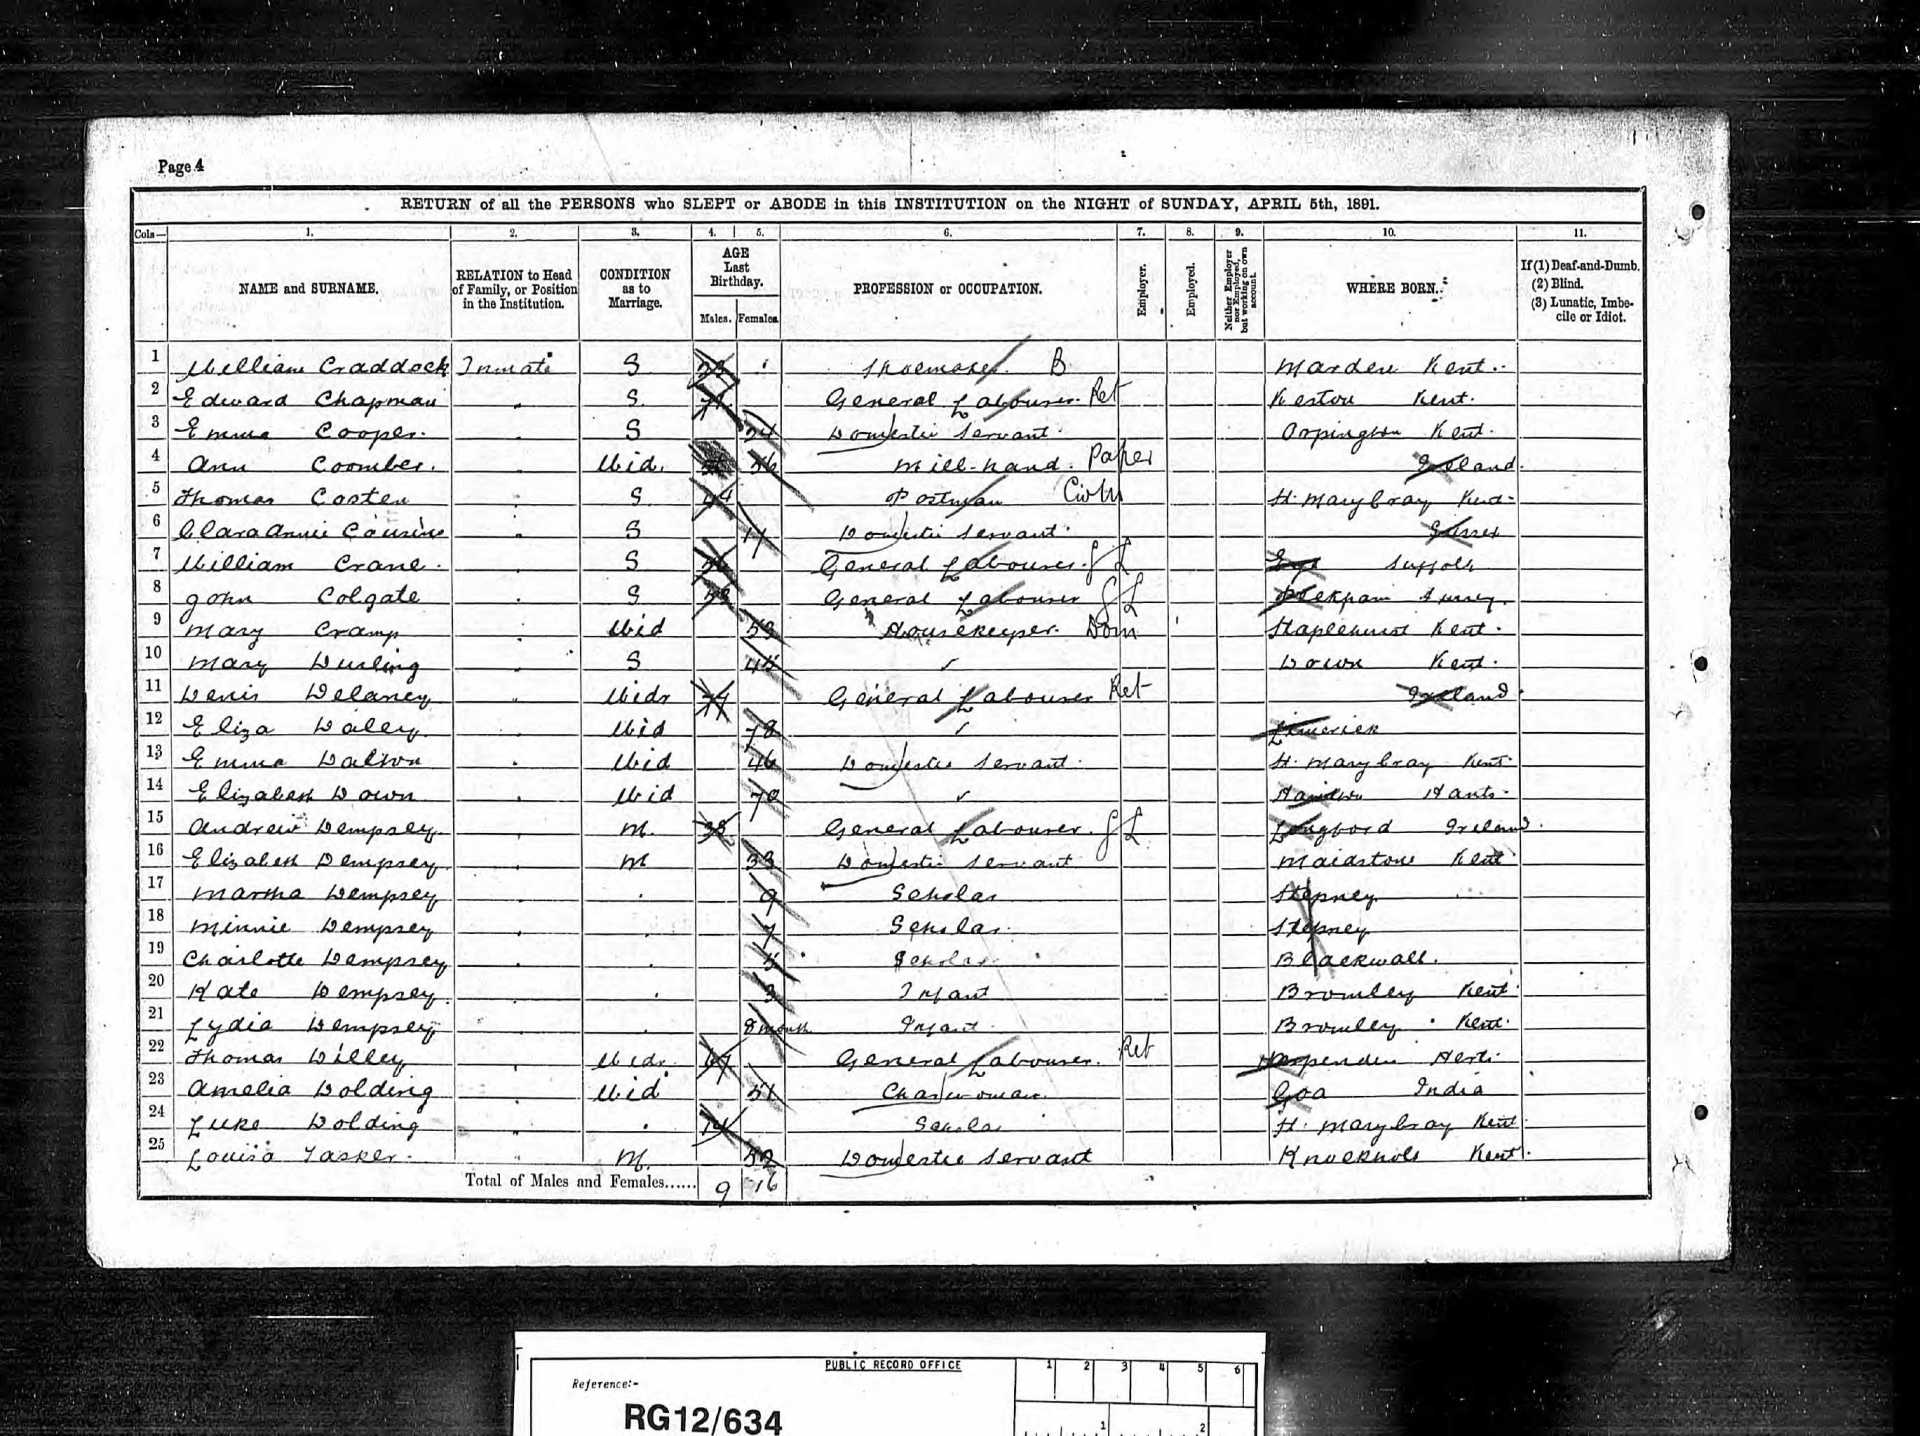 Page 4
RETURN of all the PERSONS who SLEPT or ABODE in this INSTITUTION on the NIGHT of SUNDAY, APRIL 5th, 1891.
Cols— 1. 2. 3. 4. 5. 6. 7. 8. 9. 10. 11.
NAME and SURNAME. RELATION to Head of Family, or Position in the Institution. CONDITION as to Marriage. AGE Last Birthday. Males. Females. PROFESSION or OCCUPATION. Employer. Employed. Neither Employer nor Employed, but working on own account. WHERE BORN. If (1) Deaf-and-Dumb. (2) Blind. (3) Lunatic, Imbecile or Idiot.
1 William Craddock Inmate S Shoemaker B Marden Kent
2 Edward Chapman " S General Labourer Ret Keston Kent
3 Emma Cooper " S 24 Domestic Servant Orpington Kent
4 Ann Coomber " Wid. 56 Mill-hand Paper Ireland
5 Thomas Costen " S 44 Postman St. Mary Cray Kent
6 Clara Annie Cousins " S 17 Domestic Servant Sussex
7 William Crane " S General Labourer G L Eye Suffolk
8 John Colgate " S General Labourer G L Peckham Surrey
9 Mary Cramp " Wid 53 Housekeeper Dom Staplehurst Kent
10 Mary Durling " S 45 ✓ Down Kent
11 Denis Delaney " Widr 74 General Labourer Ret Ireland
12 Eliza Daley " Wid 78 ✓ Limerick
13 Emma Dalton " Wid 46 Domestic Servant St. Mary Cray Kent
14 Elizabeth Down " Wid 70 ✓ Hants
15 Andrew Dempsey " M. 38 General Labourer G L Longford Ireland
16 Elizabeth Dempsey " M 33 Domestic Servant Maidstone Kent
17 Martha Dempsey " 9 Scholar Stepney
18 Minnie Dempsey " 7 Scholar Stepney
19 Charlotte Dempsey " 5 Scholar Blackwall
20 Kate Dempsey " 3 Infant Bromley Kent
21 Lydia Dempsey " 8 month Infant Bromley Kent
22 Thomas Dilley " Widr 67 General Labourer Ret Harpenden Herts
23 Amelia Dolding " Wid 51 Charwoman Goa India
24 Luke Dolding " 14 Scholar St. Mary Cray Kent
25 Louisa Tasker " M. 52 Domestic Servant Knockholt Kent
Total of Males and Females...... 9 16
PUBLIC RECORD OFFICE
Reference:-
RG12/634
1 2 3 4 5 6
1 2